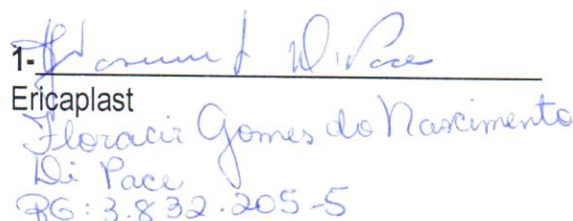 1- Di Pace
Ericaplast
Floracir Gomes do Nascimento
Di Pace
RG: 3.832.205-5